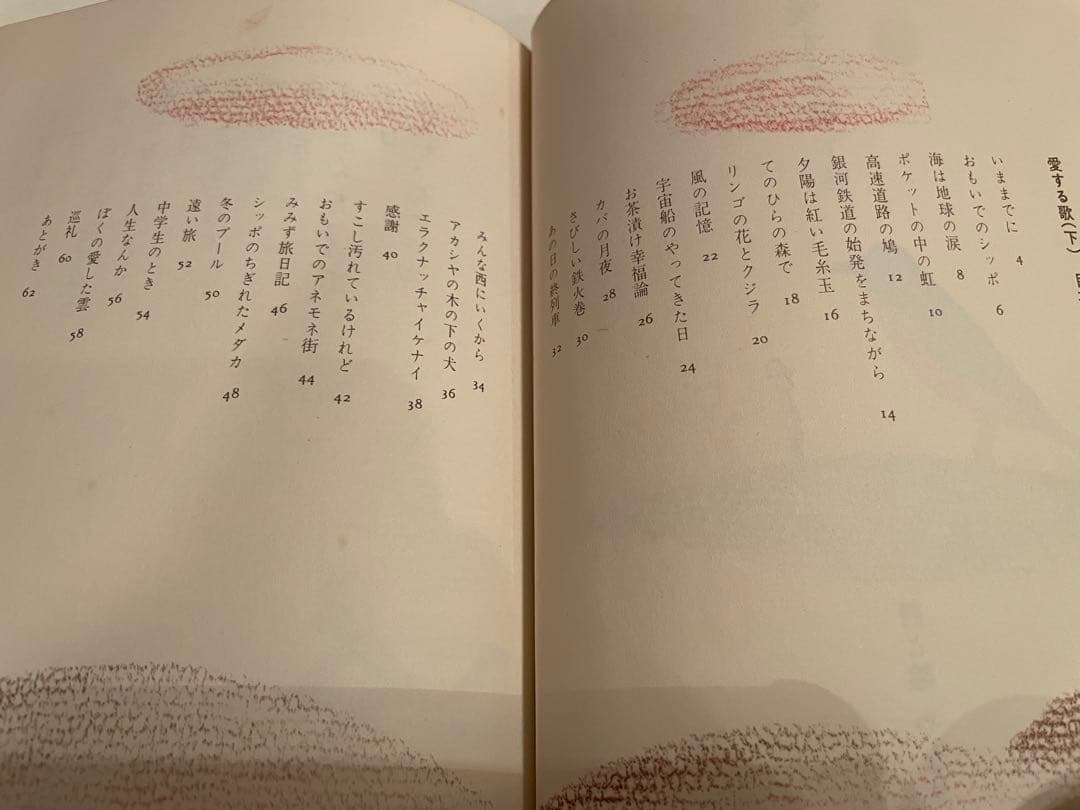 愛する歌(下)
いままでに 4
おもいでのシッポ 6
海は地球の涙 8
ポケットの中の虹 10
高速道路の鳩 12
銀河鉄道の始発をまちながら 14
夕陽は紅い毛糸玉 16
てのひらの森で 18
リンゴの花とクジラ 20
風の記憶 22
宇宙船のやってきた日 24
お茶漬け幸福論 26
カバの月夜 28
さびしい鉄火巻 30
あの日の終列車 32
みんな西にいくから 34
アカシヤの木の下の犬 36
エラクナッチャイケナイ 38
感謝 40
すこし汚れているけれど 42
おもいでのアネモネ街 44
みみず旅日記 46
シッポのちぎれたメダカ 48
冬のプール 50
遠い旅 52
中学生のとき 54
人生なんか 56
ぼくの愛した雲 58
巡礼 60
あとがき 62